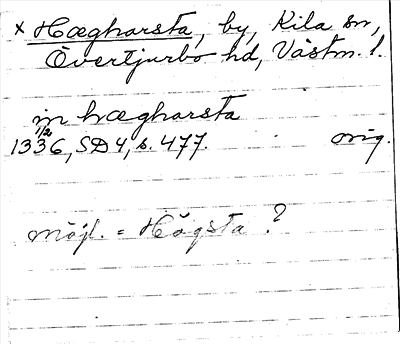 x Hægharsta, by, Kila sn,
Övertjurbo hd, Västm. l.
in hægharsta
1/2
1336, SD 4, s. 477. orig.
möjl. = Högsta ?